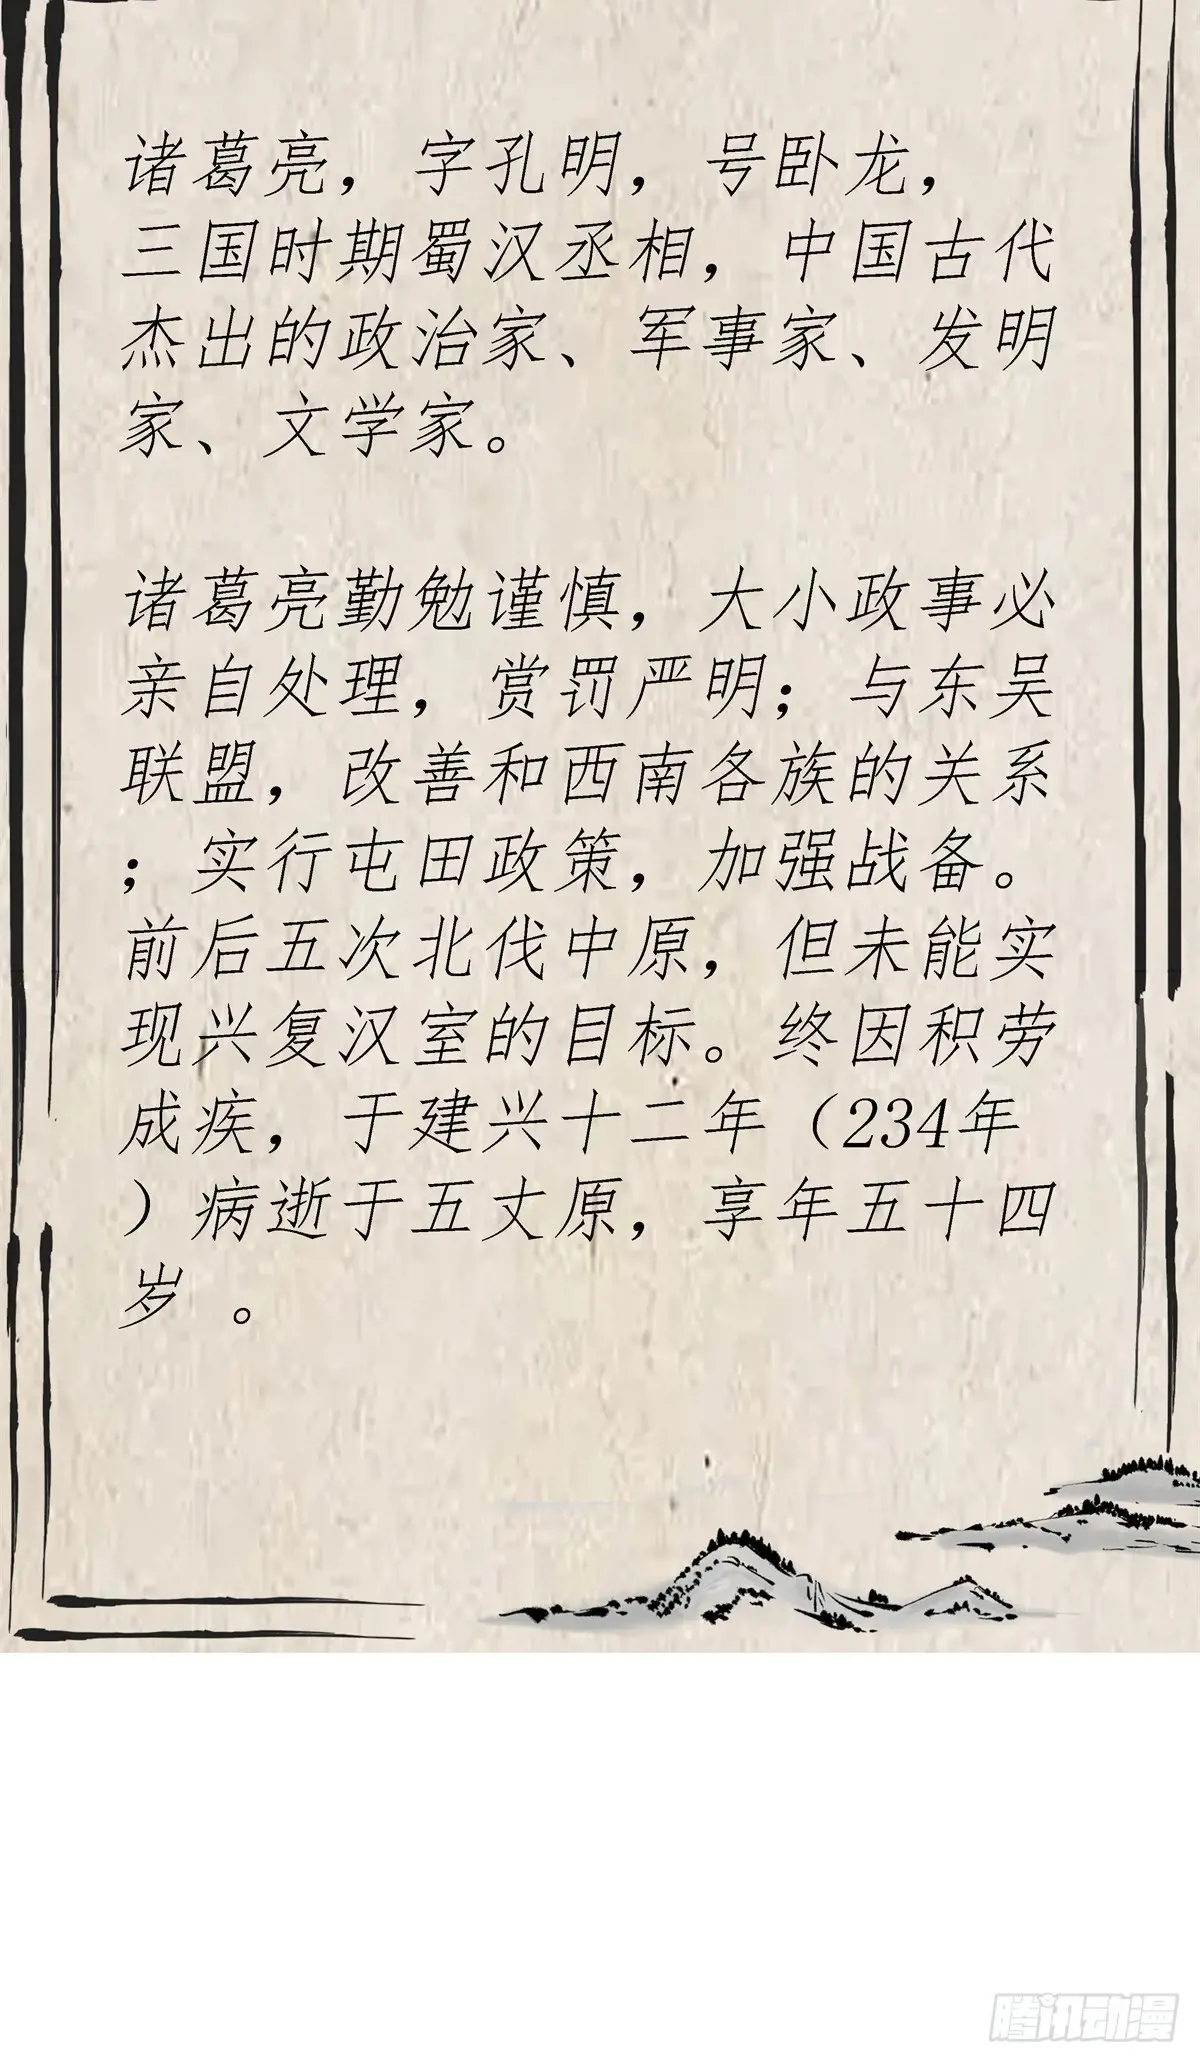 诸葛亮，字孔明，号卧龙，
三国时期蜀汉丞相，中国古代
杰出的政治家、军事家、发明
家、文学家。
诸葛亮勤勉谨慎，大小政事必
亲自处理，赏罚严明；与东吴
联盟，改善和西南各族的关系
；实行屯田政策，加强战备。
前后五次北伐中原，但未能实
现兴复汉室的目标。终因积劳
成疾，于建兴十二年（234年
）病逝于五丈原，享年五十四
岁 。
腾讯动漫